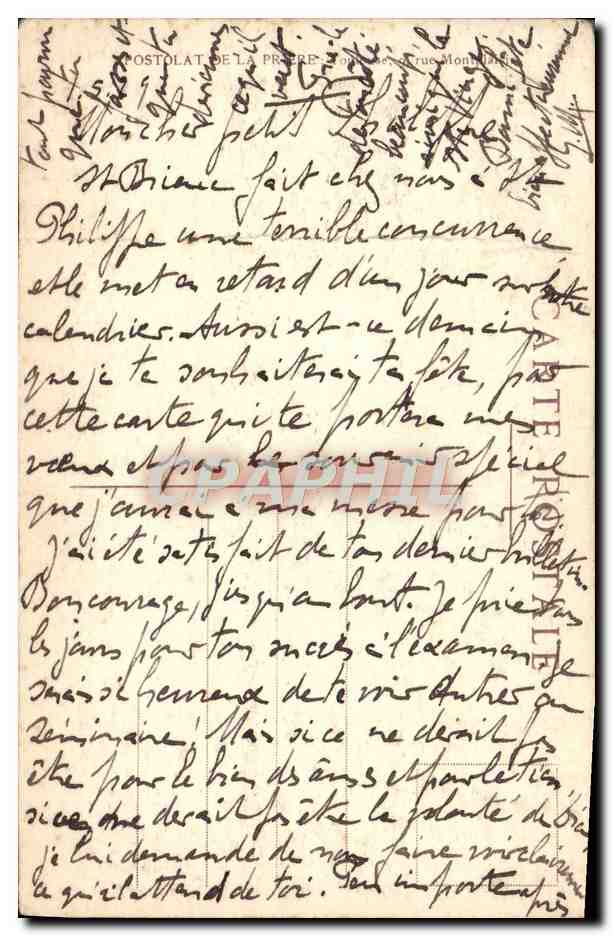 APOSTOLAT DE LA PRIÈRE Toulouse, 9, rue Montplaisir
CARTE POSTALE
CPAPHIL
Mon cher petit
St Brieuc fait chez nous à St
Philippe une terrible concurrence
et le met en retard d'un jour sur notre
calendrier. Aussi est-ce demain
que je te souhaiterai ta fête, par
cette carte qui te portera mes
vœux et par le souvenir spécial
que j'aurai à ma messe pour toi
J'ai été satisfait de ton dernier bulletin.
Bon courage, jusqu'au bout. Je prie tous
les jours pour ton succès à l'examen. Je
serais si heureux de te voir entrer au
séminaire! Mais si ce ne devait pas
être pour le bien des âmes et pour le tien,
si ce ne devait pas être la volonté de Dieu,
je lui demande de nous faire voir clairement
ce qu'il attend de toi. Peu importe après
tout pourvu
que tu
sois et
que tu
deviennes
ce qu'il
veut.